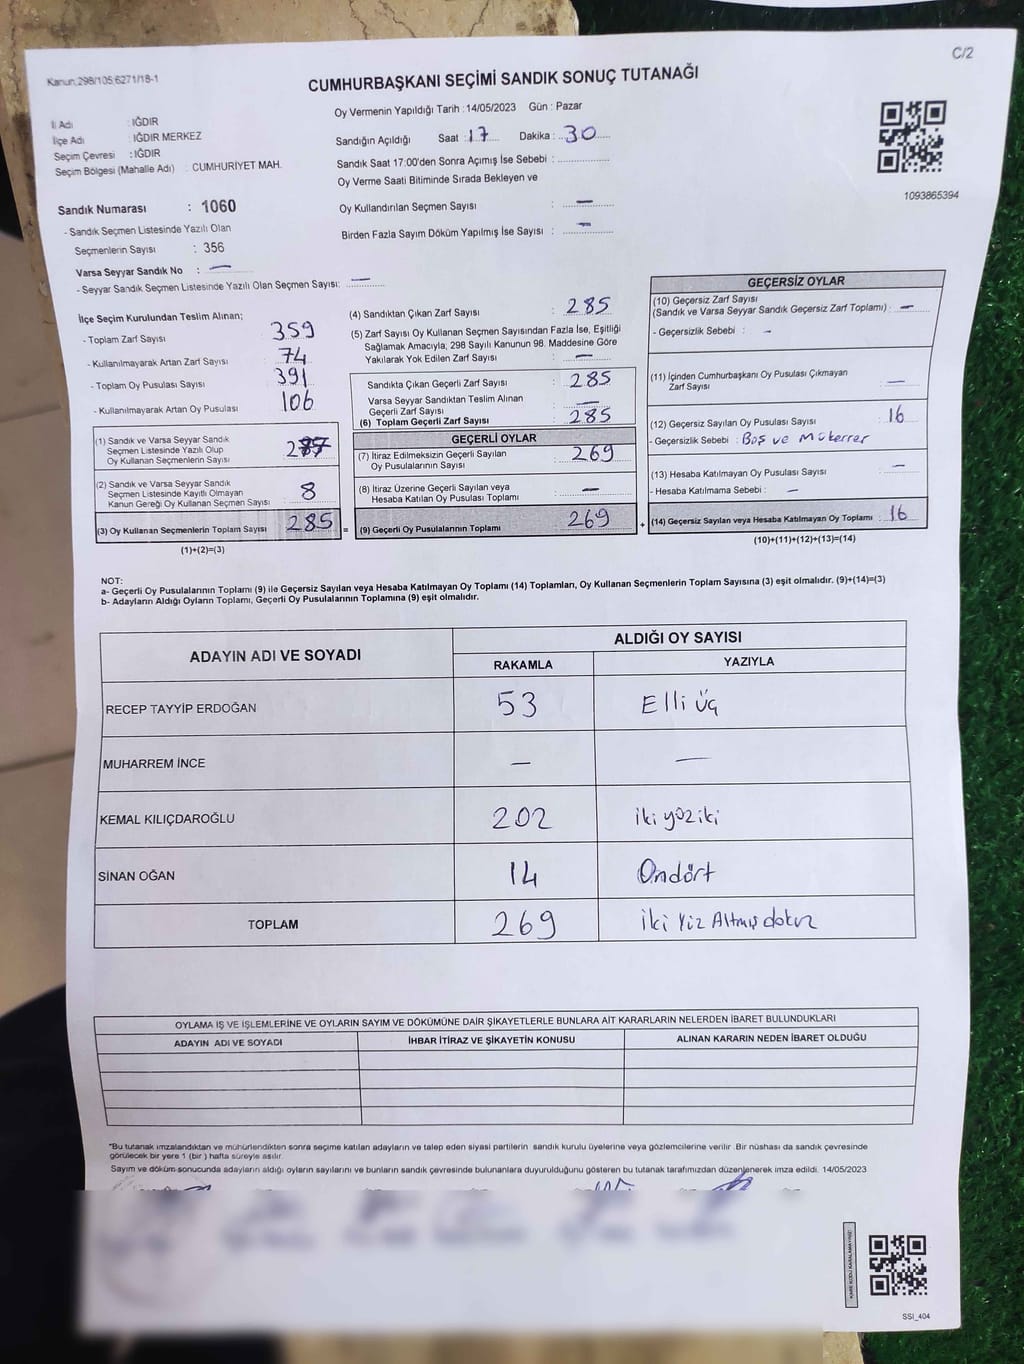 C/2
Kanun:298/105;6271/18-1
CUMHURBAŞKANI SEÇİMİ SANDIK SONUÇ TUTANAĞI
Oy Vermenin Yapıldığı Tarih : 14/05/2023 Gün : Pazar
İl Adı : IĞDIR
İlçe Adı : IĞDIR MERKEZ
Seçim Çevresi : IĞDIR
Seçim Bölgesi (Mahalle Adı) : CUMHURİYET MAH.
Sandık Numarası : 1060
- Sandık Seçmen Listesinde Yazılı Olan
Seçmenlerin Sayısı : 356
Varsa Seyyar Sandık No : —
- Seyyar Sandık Seçmen Listesinde Yazılı Olan Seçmen Sayısı: —
Sandığın Açıldığı Saat : 17 Dakika : 30
Sandık Saat 17:00'den Sonra Açımış İse Sebebi :
Oy Verme Saati Bitiminde Sırada Bekleyen ve
Oy Kullandırılan Seçmen Sayısı : —
Birden Fazla Sayım Döküm Yapılmış İse Sayısı : —
1093865394
İlçe Seçim Kurulundan Teslim Alınan;
- Toplam Zarf Sayısı 359
- Kullanılmayarak Artan Zarf Sayısı 74
- Toplam Oy Pusulası Sayısı 391
- Kullanılmayarak Artan Oy Pusulası 106
(1) Sandık ve Varsa Seyyar Sandık
Seçmen Listesinde Yazılı Olup
Oy Kullanan Seçmenlerin Sayısı
(2) Sandık ve Varsa Seyyar Sandık
Seçmen Listesinde Kayıtlı Olmayan
Kanun Gereği Oy Kullanan Seçmen Sayısı 8
(3) Oy Kullanan Seçmenlerin Toplam Sayısı 285 =
(1)+(2)=(3)
(4) Sandıktan Çıkan Zarf Sayısı : 285
(5) Zarf Sayısı Oy Kullanan Seçmen Sayısından Fazla İse, Eşitliği
Sağlamak Amacıyla; 298 Sayılı Kanunun 98. Maddesine Göre
Yakılarak Yok Edilen Zarf Sayısı : —
Sandıkta Çıkan Geçerli Zarf Sayısı : 285
Varsa Seyyar Sandıktan Teslim Alınan
Geçerli Zarf Sayısı : —
(6) Toplam Geçerli Zarf Sayısı : 285
GEÇERLİ OYLAR
(7) İtiraz Edilmeksizin Geçerli Sayılan
Oy Pusulalarının Sayısı : 269
(8) İtiraz Üzerine Geçerli Sayılan veya
Hesaba Katılan Oy Pusulası Toplamı : —
(9) Geçerli Oy Pusulalarının Toplamı 269 +
GEÇERSİZ OYLAR
(10) Geçersiz Zarf Sayısı
(Sandık ve Varsa Seyyar Sandık Geçersiz Zarf Toplamı) : —
- Geçersizlik Sebebi : —
(11) İçinden Cumhurbaşkanı Oy Pusulası Çıkmayan
Zarf Sayısı : —
(12) Geçersiz Sayılan Oy Pusulası Sayısı : 16
- Geçersizlik Sebebi : Boş ve Mükerrer
(13) Hesaba Katılmayan Oy Pusulası Sayısı : —
- Hesaba Katılmama Sebebi : —
(14) Geçersiz Sayılan veya Hesaba Katılmayan Oy Toplamı : 16
(10)+(11)+(12)+(13)=(14)
NOT:
a- Geçerli Oy Pusulalarının Toplamı (9) ile Geçersiz Sayılan veya Hesaba Katılmayan Oy Toplamı (14) Toplamları, Oy Kullanan Seçmenlerin Toplam Sayısına (3) eşit olmalıdır. (9)+(14)=(3)
b- Adayların Aldığı Oyların Toplamı, Geçerli Oy Pusulalarının Toplamına (9) eşit olmalıdır.
ADAYIN ADI VE SOYADI
ALDIĞI OY SAYISI
RAKAMLA YAZIYLA
RECEP TAYYİP ERDOĞAN 53 Elli üç
MUHARREM İNCE — —
KEMAL KILIÇDAROĞLU 202 iki yüz iki
SİNAN OĞAN 14 Ondört
TOPLAM 269 iki Yüz Altmış dokuz
OYLAMA İŞ VE İŞLEMLERİNE VE OYLARIN SAYIM VE DÖKÜMÜNE DAİR ŞİKAYETLERLE BUNLARA AİT KARARLARIN NELERDEN İBARET BULUNDUKLARI
ADAYIN ADI VE SOYADI İHBAR İTİRAZ VE ŞİKAYETİN KONUSU ALINAN KARARIN NEDEN İBARET OLDUĞU
*Bu tutanak imzalandıktan ve mühürlendikten sonra seçime katılan adayların ve talep eden siyasi partilerin sandık kurulu üyelerine veya gözlemcilerine verilir. Bir nüshası da sandık çevresinde
görülecek bir yere 1 (bir) hafta süreyle asılır.
Sayım ve döküm sonucunda adayların aldığı oyların sayılarını ve bunların sandık çevresinde bulunanlara duyurulduğunu gösteren bu tutanak tarafımızdan düzenlenerek imza edildi. 14/05/2023
KARE KODU KARALAMAYINIZ!
SSI_404